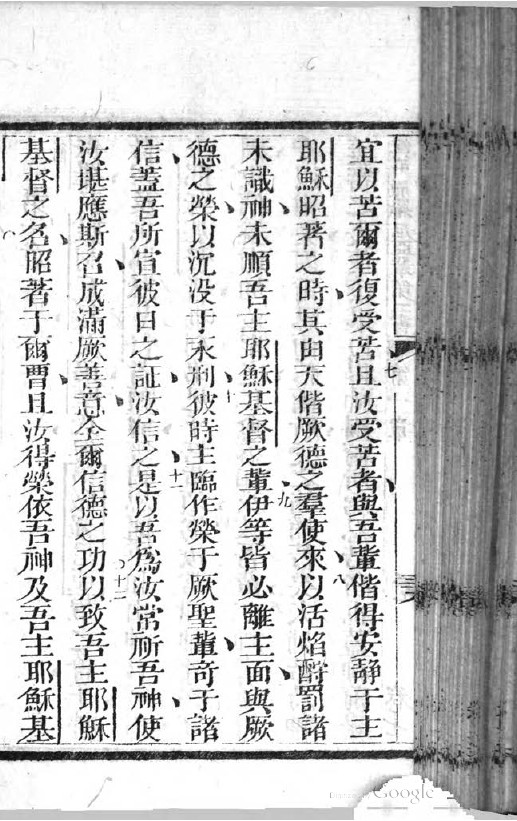 宜以苦爾者復受苦七且汝受苦者與吾輩偕得安靜于主
耶穌昭著之時其由天偕厥德之羣使來八以活焰酧罰諸
未識神未順吾主耶穌基督之輩九伊等皆必離主面與厥
德之榮以沉没于永刑十彼時主臨作榮于厥聖輩奇于諸
信蓋吾所宣彼日之証汝信之十一是以吾爲汝常祈吾神使
汝堪應斯召成滿厥善意全爾信德之功十二以致吾主耶穌
基督之名昭著于爾曹且汝得榮依吾神及吾主耶穌基
Google